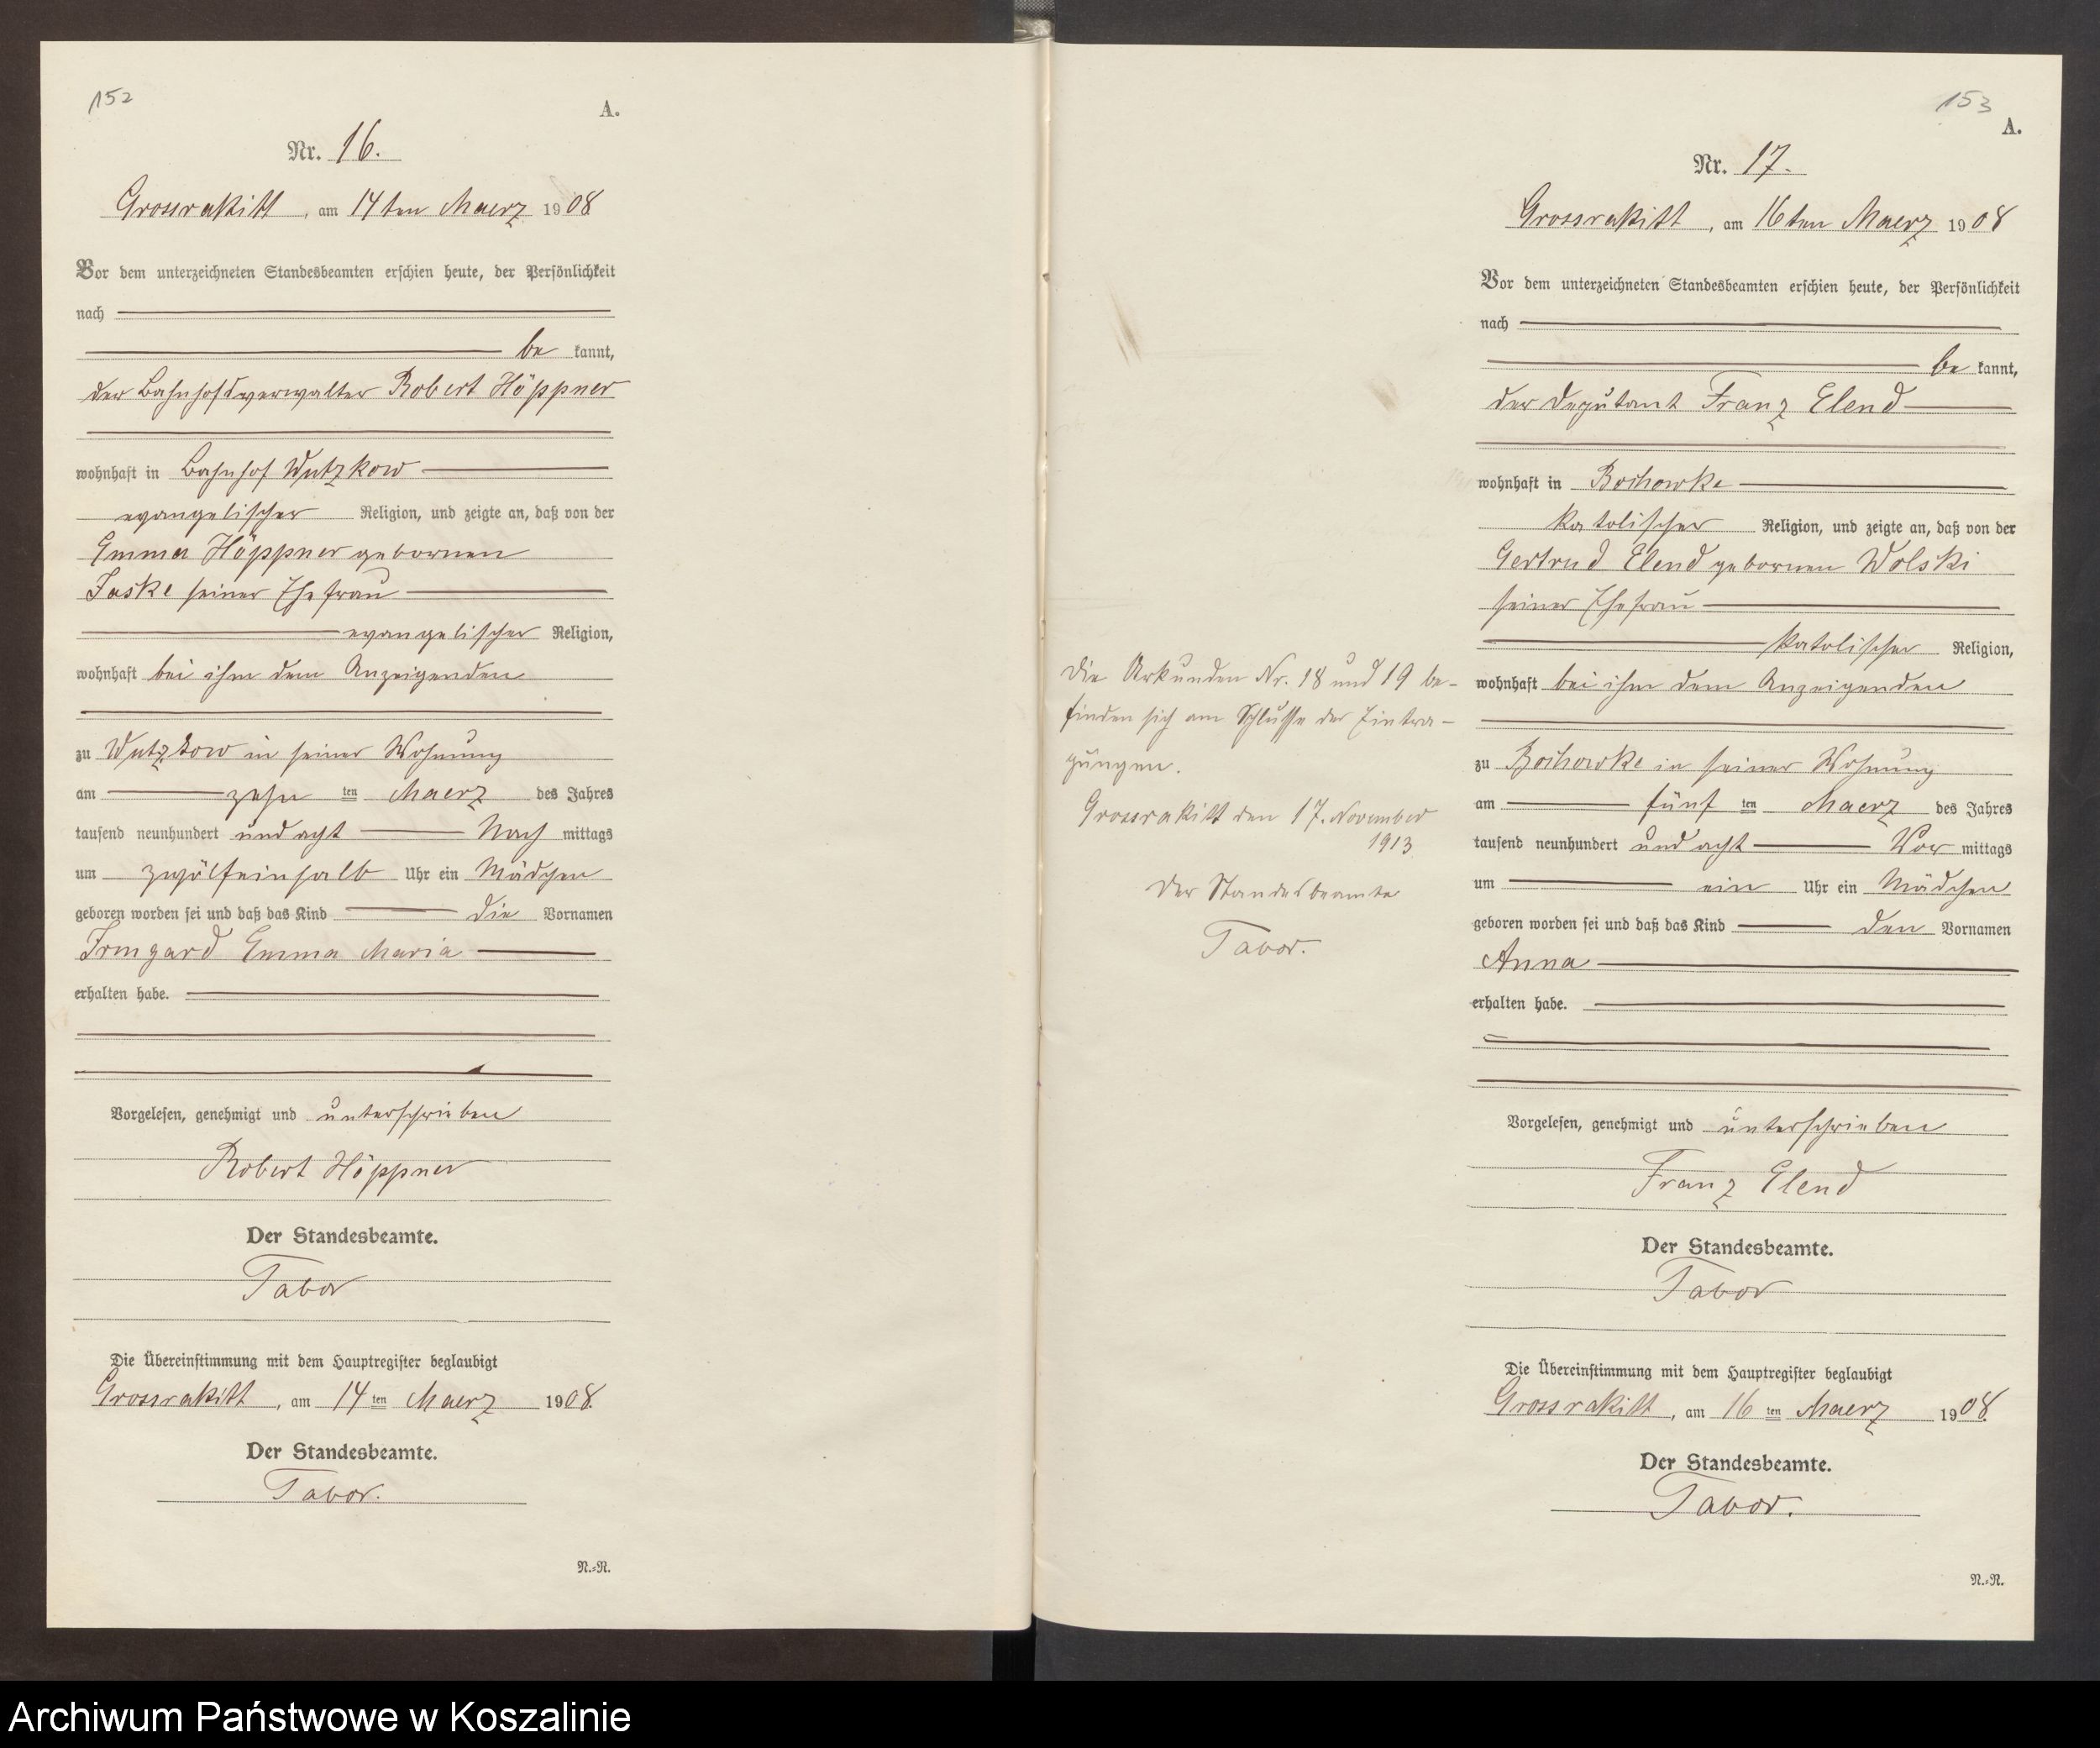 152
A.
Nr. 16.
Grossrakitt, am 14ten Maerz 1908
Vor dem unterzeichneten Standesbeamten erschien heute, der Persönlichkeit
nach
be kannt,
der Bahnhofsverwalter Robert Höppner
wohnhaft in Bahnhof Wutzkow
evangelischer Religion, und zeigte an, daß von der
Emma Höppner gebornen
Jaske seiner Ehefrau
evangelischer Religion,
wohnhaft bei ihm dem Anzeigenden
zu Wutzkow in seiner Wohnung
am zehn ten Maerz des Jahres
tausend neunhundert und acht Nach mittags
um zwölfeinhalb Uhr ein Mädchen
geboren worden sei und daß das Kind die Vornamen
Irmgard Emma Maria
erhalten habe.
Vorgelesen, genehmigt und unterschrieben
Robert Höppner
Der Standesbeamte.
Tabor
Die Übereinstimmung mit dem Hauptregister beglaubigt
Grossrakitt, am 14 ten Maerz 1908.
Der Standesbeamte.
Tabor.
N.-R.
Die Urkunden Nr. 18 und 19 be-
finden sich am Schlusse der Eintra-
gungen.
Grossrakitt den 17. November
1913
Der Standesbeamte
Tabor.
153
A.
Nr. 17.
Grossrakitt, am 16ten Maerz 1908
Vor dem unterzeichneten Standesbeamten erschien heute, der Persönlichkeit
nach
be kannt,
der Deputant Franz Elend
wohnhaft in Bochowke
katolischer Religion, und zeigte an, daß von der
Gertrud Elend gebornen Wolski
seiner Ehefrau
katolischer Religion,
wohnhaft bei ihm dem Anzeigenden
zu Bochowke in seiner Wohnung
am fünf ten Maerz des Jahres
tausend neunhundert und acht Vor mittags
um ein Uhr ein Mädchen
geboren worden sei und daß das Kind den Vornamen
Anna
erhalten habe.
Vorgelesen, genehmigt und unterschrieben
Franz Elend
Der Standesbeamte.
Tabor
Die Übereinstimmung mit dem Hauptregister beglaubigt
Grossrakitt, am 16 ten Maerz 1908.
Der Standesbeamte.
Tabor.
N.-R.
Archiwum Państwowe w Koszalinie